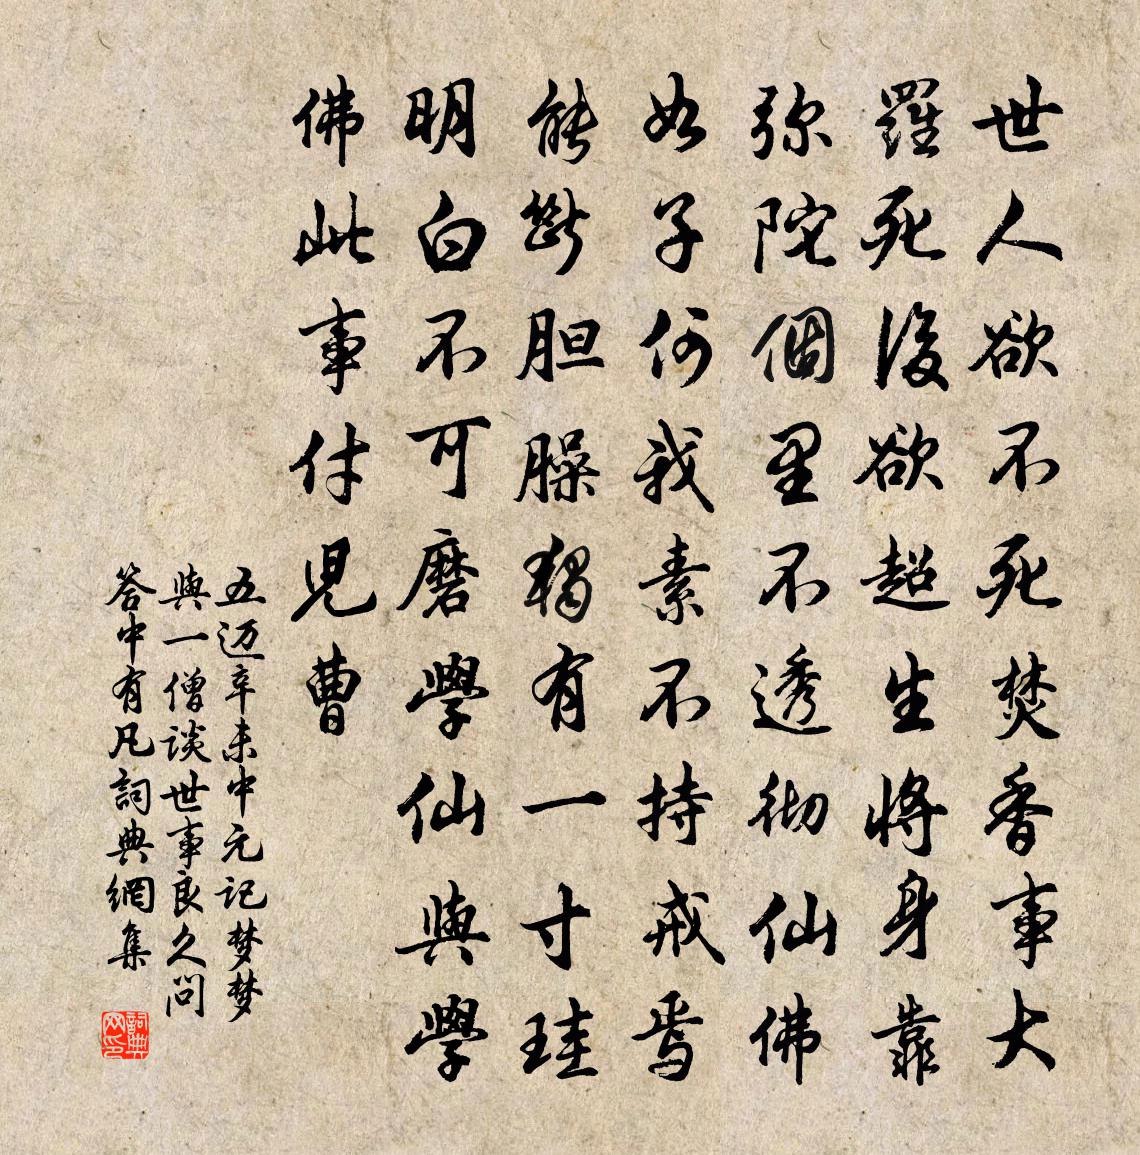 世人欲不死焚香事大
羅死後欲超生將身靠
弥陀個里不透彻仙佛
如子何我素不持戒焉
能斷胆臊獨有一寸珪
明白不可磨學仙與學
佛此事付兒曹
五迈辛未中元记梦梦
與一僧谈世事良久问
答中有凡詞典網集
詞典网印